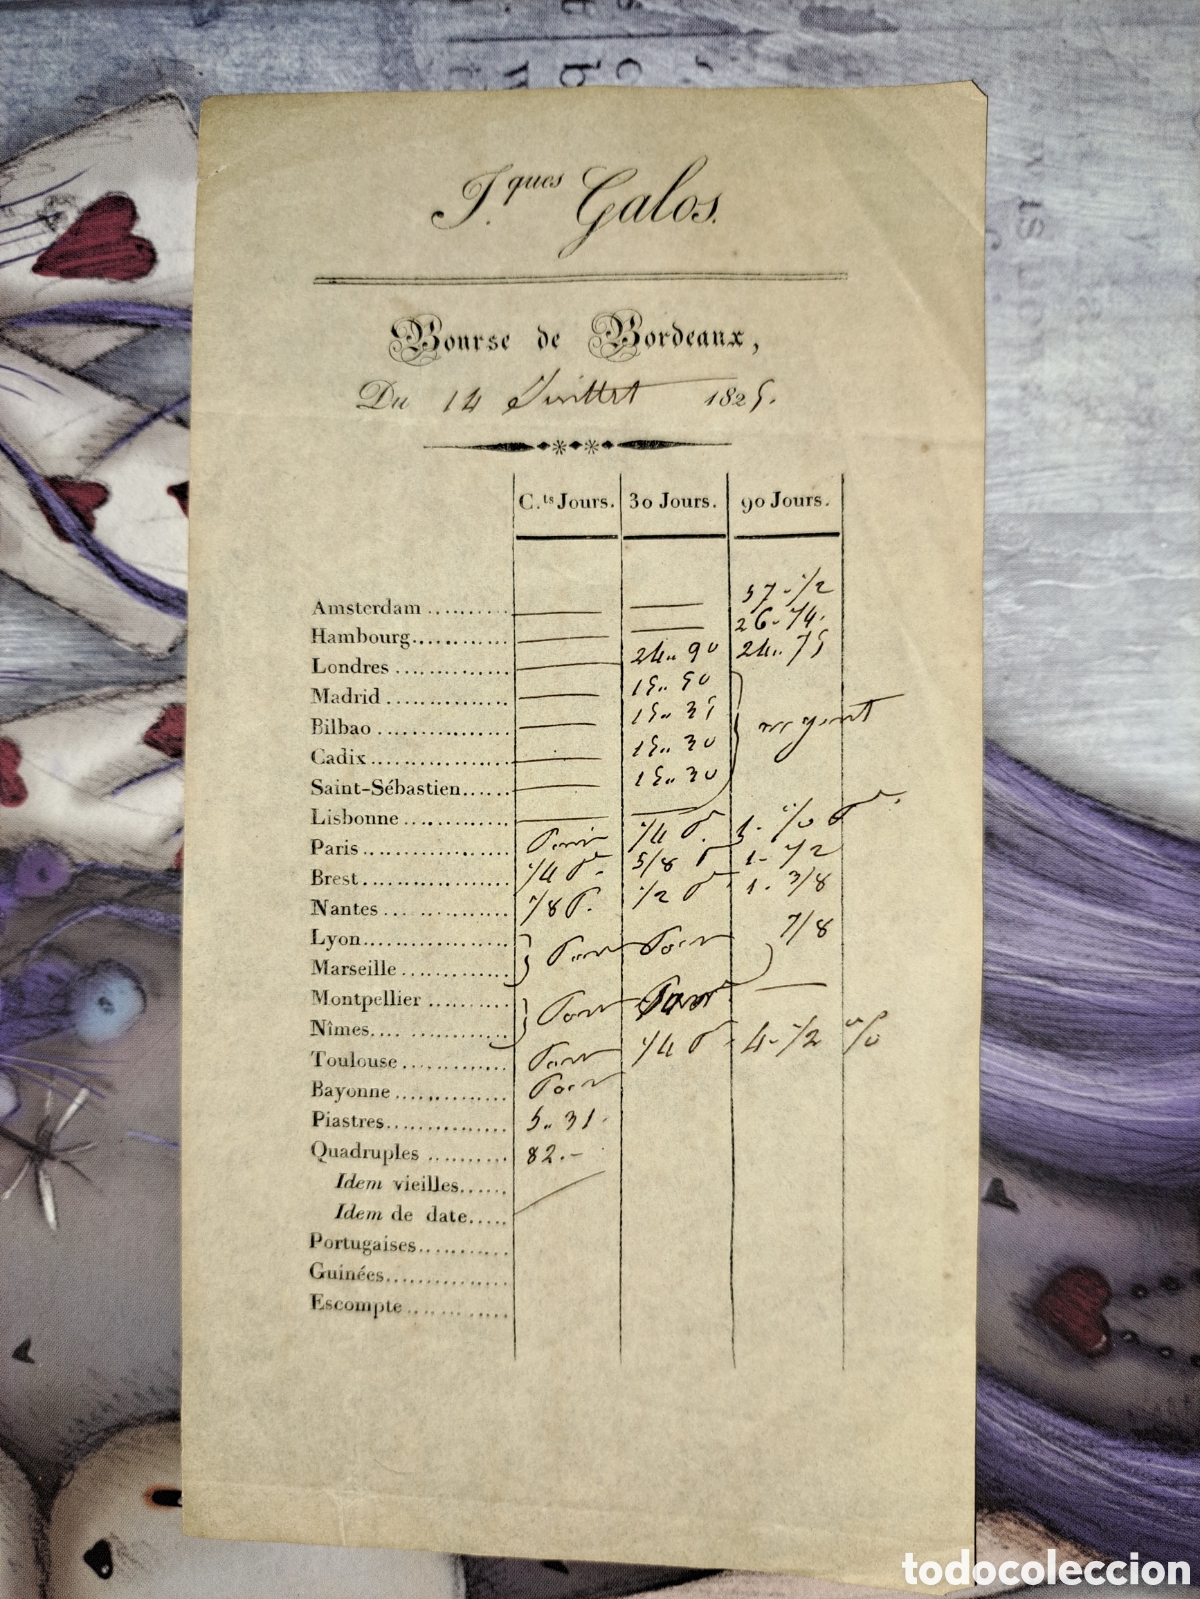 J.ques Galos.
Bourse de Bordeaux,
Du 14 Juillet 1825.
C.ts Jours. 30 Jours. 90 Jours.
Amsterdam .......... — — 57 - 1/2
Hambourg............ — — 26 - 1/4.
Londres .............. — 24.. 90 24.. 75
Madrid ............... — 15.. 50
Bilbao ................ — 15.. 35 argent
Cadix................. — 15.. 30
Saint-Sébastien...... — 15.. 30
Lisbonne ............. — —
Paris ................. Pair 1/4 P. 1 - P.
Brest.................. 1/4 P. 5/8 P 1 - 1/2
Nantes ... ............ 7/8 P. 1/2 P 1 - 3/8
Lyon................... Pair Pair 7/8
Marseille .............
Montpellier .......... Pair Pair —
Nîmes.... ............
Toulouse ............. Pair 1/4 P 4 - 1/2 %
Bayonne .............. Pair
Piastres............... 5.. 31.
Quadruples .......... 82. -
Idem vieilles......
Idem de date.....
Portugaises...........
Guinées...............
Escompte .............
todocoleccion